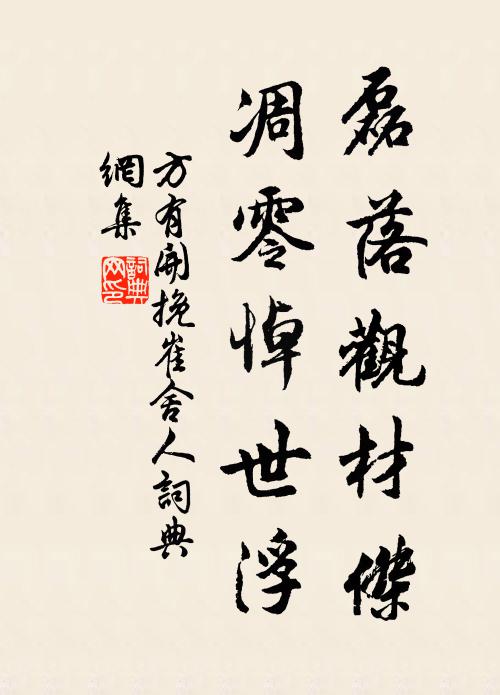 磊落觀材傑
凋零悼世浮
方有開挽崔舍人詞典
網集
詞典
网印